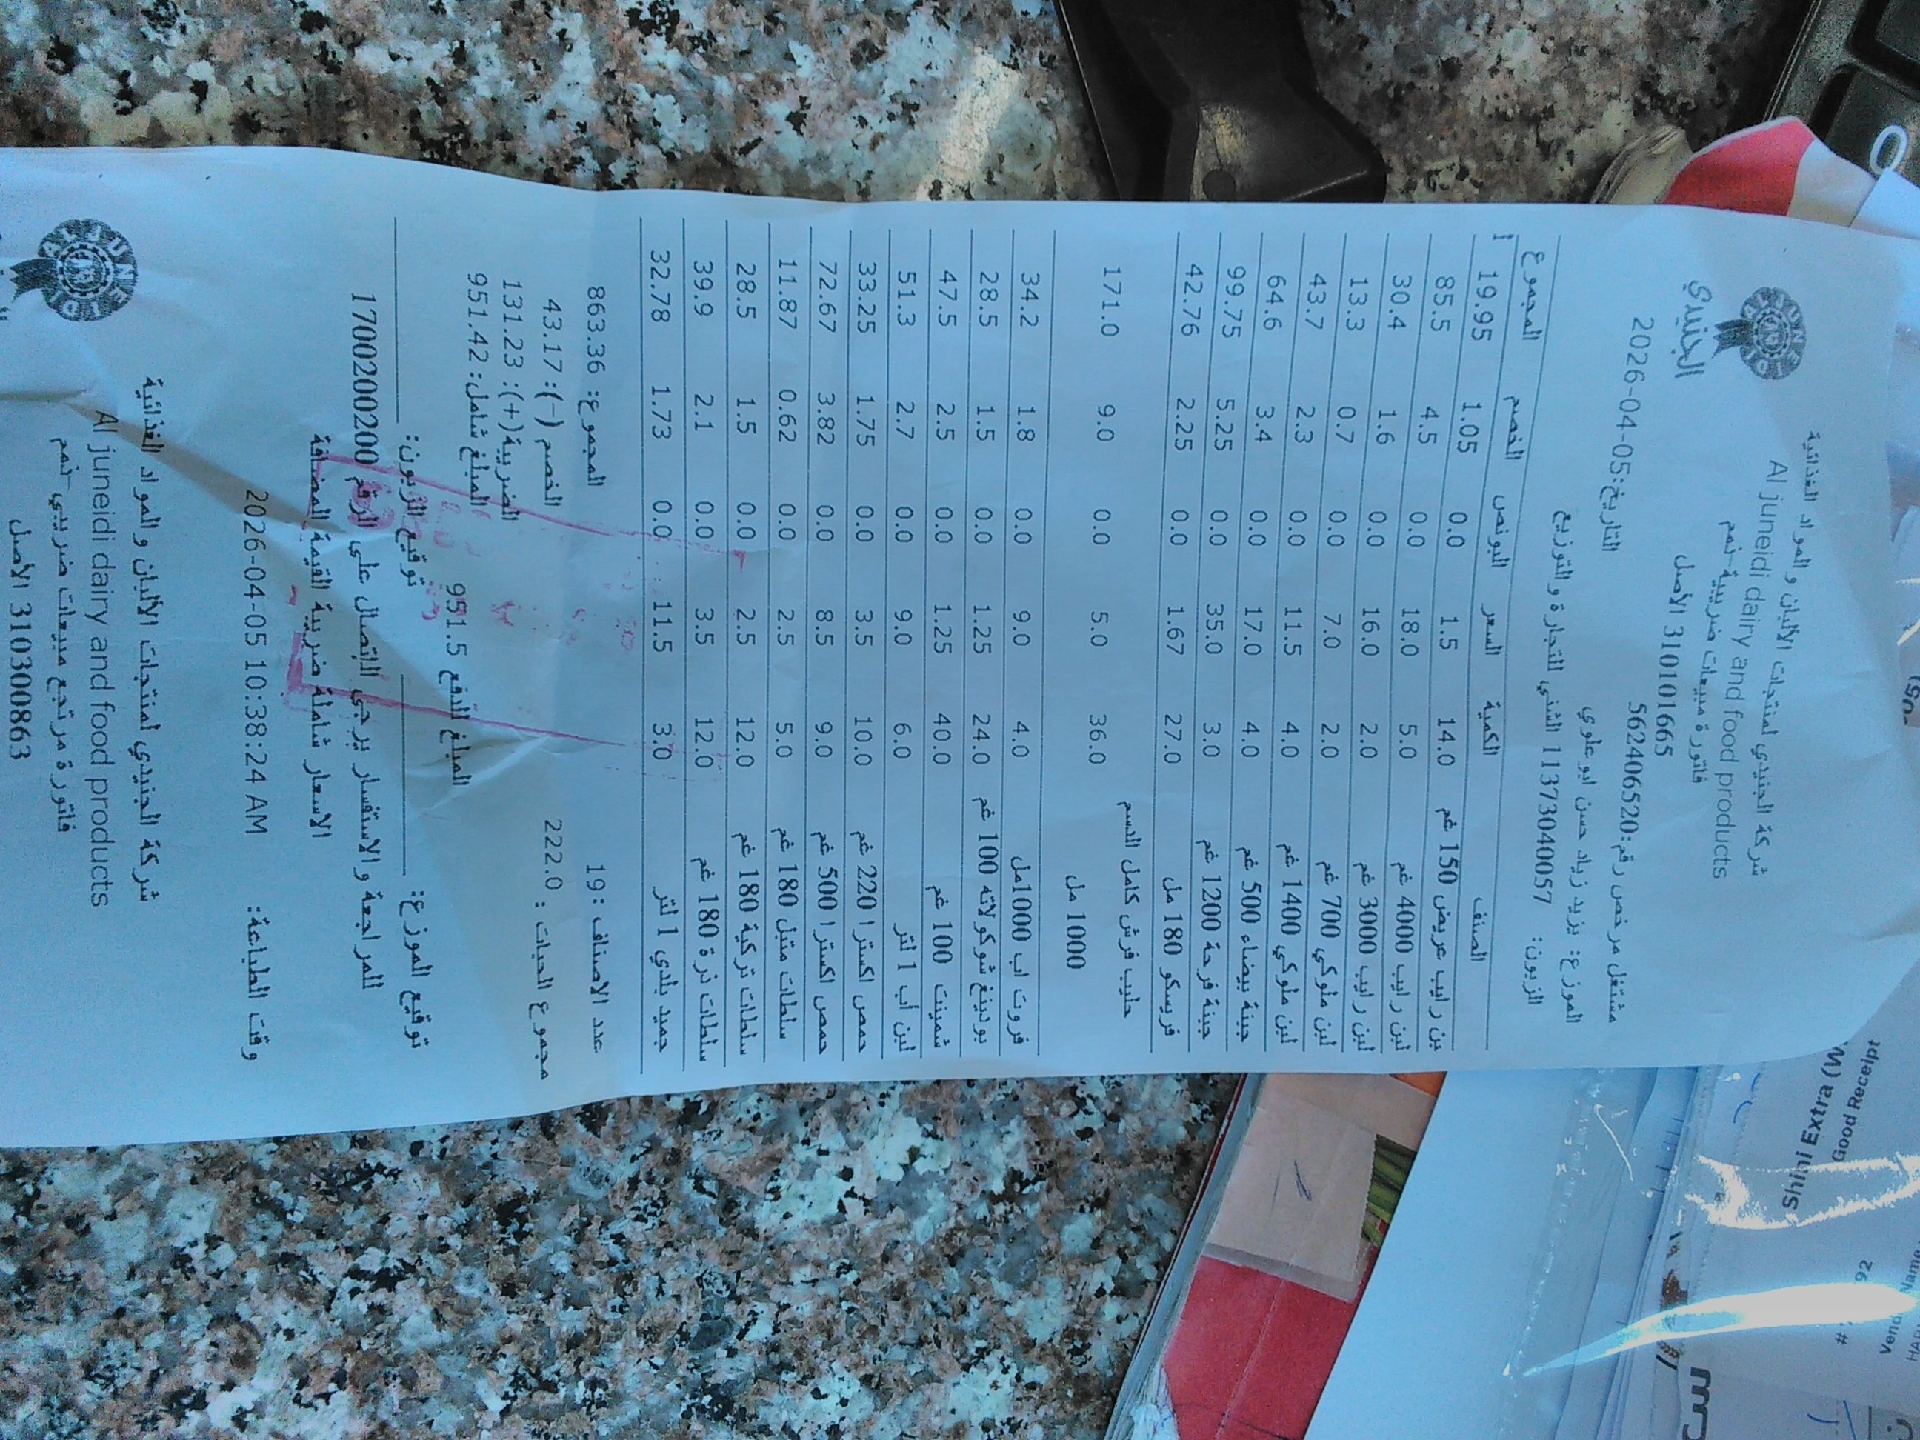 الجنيدي
شركة الجنيدي لمنتجات الألبان و المواد الغذائية
Al juneidi dairy and food products
فاتورة مبيعات ضريبية-نعم
310101665 الأصل
مشتغل مرخص رقم:562406520 التاريخ:2026-04-05
الموزع: يزيد زياد حسن ابو علوي
الزبون: 11373040057 الشني للتجارة والتوزيع
الصنف الكمية السعر البونص الخصم المجموع
بن رايب عريض 150 غم 14.0 1.5 0.0 1.05 19.95
لبن رايب 4000 غم 5.0 18.0 0.0 4.5 85.5
لبن رايب 3000 غم 2.0 16.0 0.0 1.6 30.4
لبن ملوكي 700 غم 2.0 7.0 0.0 0.7 13.3
لبن ملوكي 1400 غم 4.0 11.5 0.0 2.3 43.7
جبنة بيضاء 500 غم 4.0 17.0 0.0 3.4 64.6
جبنة فرحة 1200 غم 3.0 35.0 0.0 5.25 99.75
فريسكو 180 مل 27.0 1.67 0.0 2.25 42.76
حليب فرش كامل الدسم 36.0 5.0 0.0 9.0 171.0
1000 مل
فروت اب 1000مل 4.0 9.0 0.0 1.8 34.2
بودينغ شوكولاته 100 غم 24.0 1.25 0.0 1.5 28.5
شمينت 100 غم 40.0 1.25 0.0 2.5 47.5
لبن أب 1 لتر 6.0 9.0 0.0 2.7 51.3
حمص اكسترا 220 غم 10.0 3.5 0.0 1.75 33.25
حمص اكسترا 500 غم 9.0 8.5 0.0 3.82 72.67
سلطات متبل 180 غم 5.0 2.5 0.0 0.62 11.87
سلطات تركية 180 غم 12.0 2.5 0.0 1.5 28.5
سلطات ذرة 180 غم 12.0 3.5 0.0 2.1 39.9
جميد بلدي 1 لتر 3.0 11.5 0.0 1.73 32.78
عدد الاصناف :19 المجموع: 863.36
مجموع الحبات : 222.0 الخصم (-): 43.17
الضريبة(+): 131.23
المبلغ شامل: 951.42
المبلغ للدفع 951.5
توقيع الموزع: توقيع الزبون:
للمراجعة و الاستفسار يرجى الاتصال على الرقم 1700200200
الاسعار شاملة ضريبة القيمة المضافة
وقت الطباعة: 2026-04-05 10:38:24 AM
شركة الجنيدي لمنتجات الألبان و المواد الغذائية
Al juneidi dairy and food products
فاتورة مرتجع مبيعات ضريبي-نعم
310300863 الأصل
Shini Extra (W
Good Receipt
92